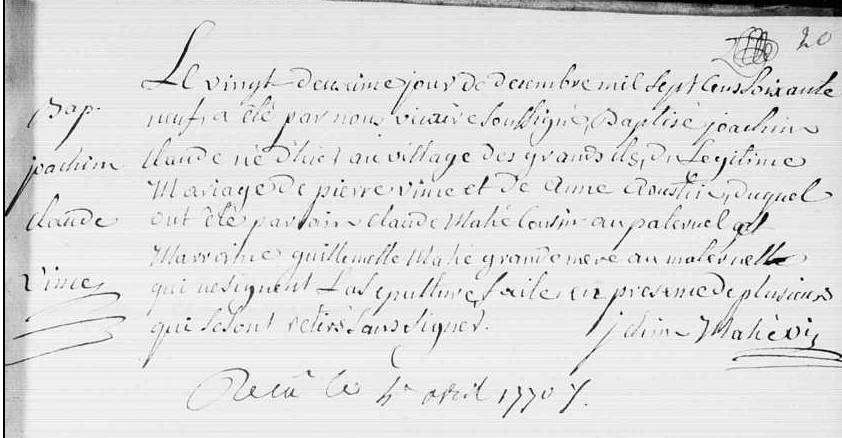 20
Le vingt deuxime jour de decembre mil sept cens soixante
neuf, a été par nous vicaire soussigné, Baptisé joachim
claude né d'hier au village des grands du Legitime
Mariage de pierre vince et de anne duquel
ont été parrain claude Mahé Cousin au paternel et
Marraine guillemette Mahé grande mere au maternelle
qui ne signent La sepulture faite en presence de plusieurs
qui se sont retiré sans signer.
Mahé vic
Bap.
joachim
claude
vince
le 4e avril 1770